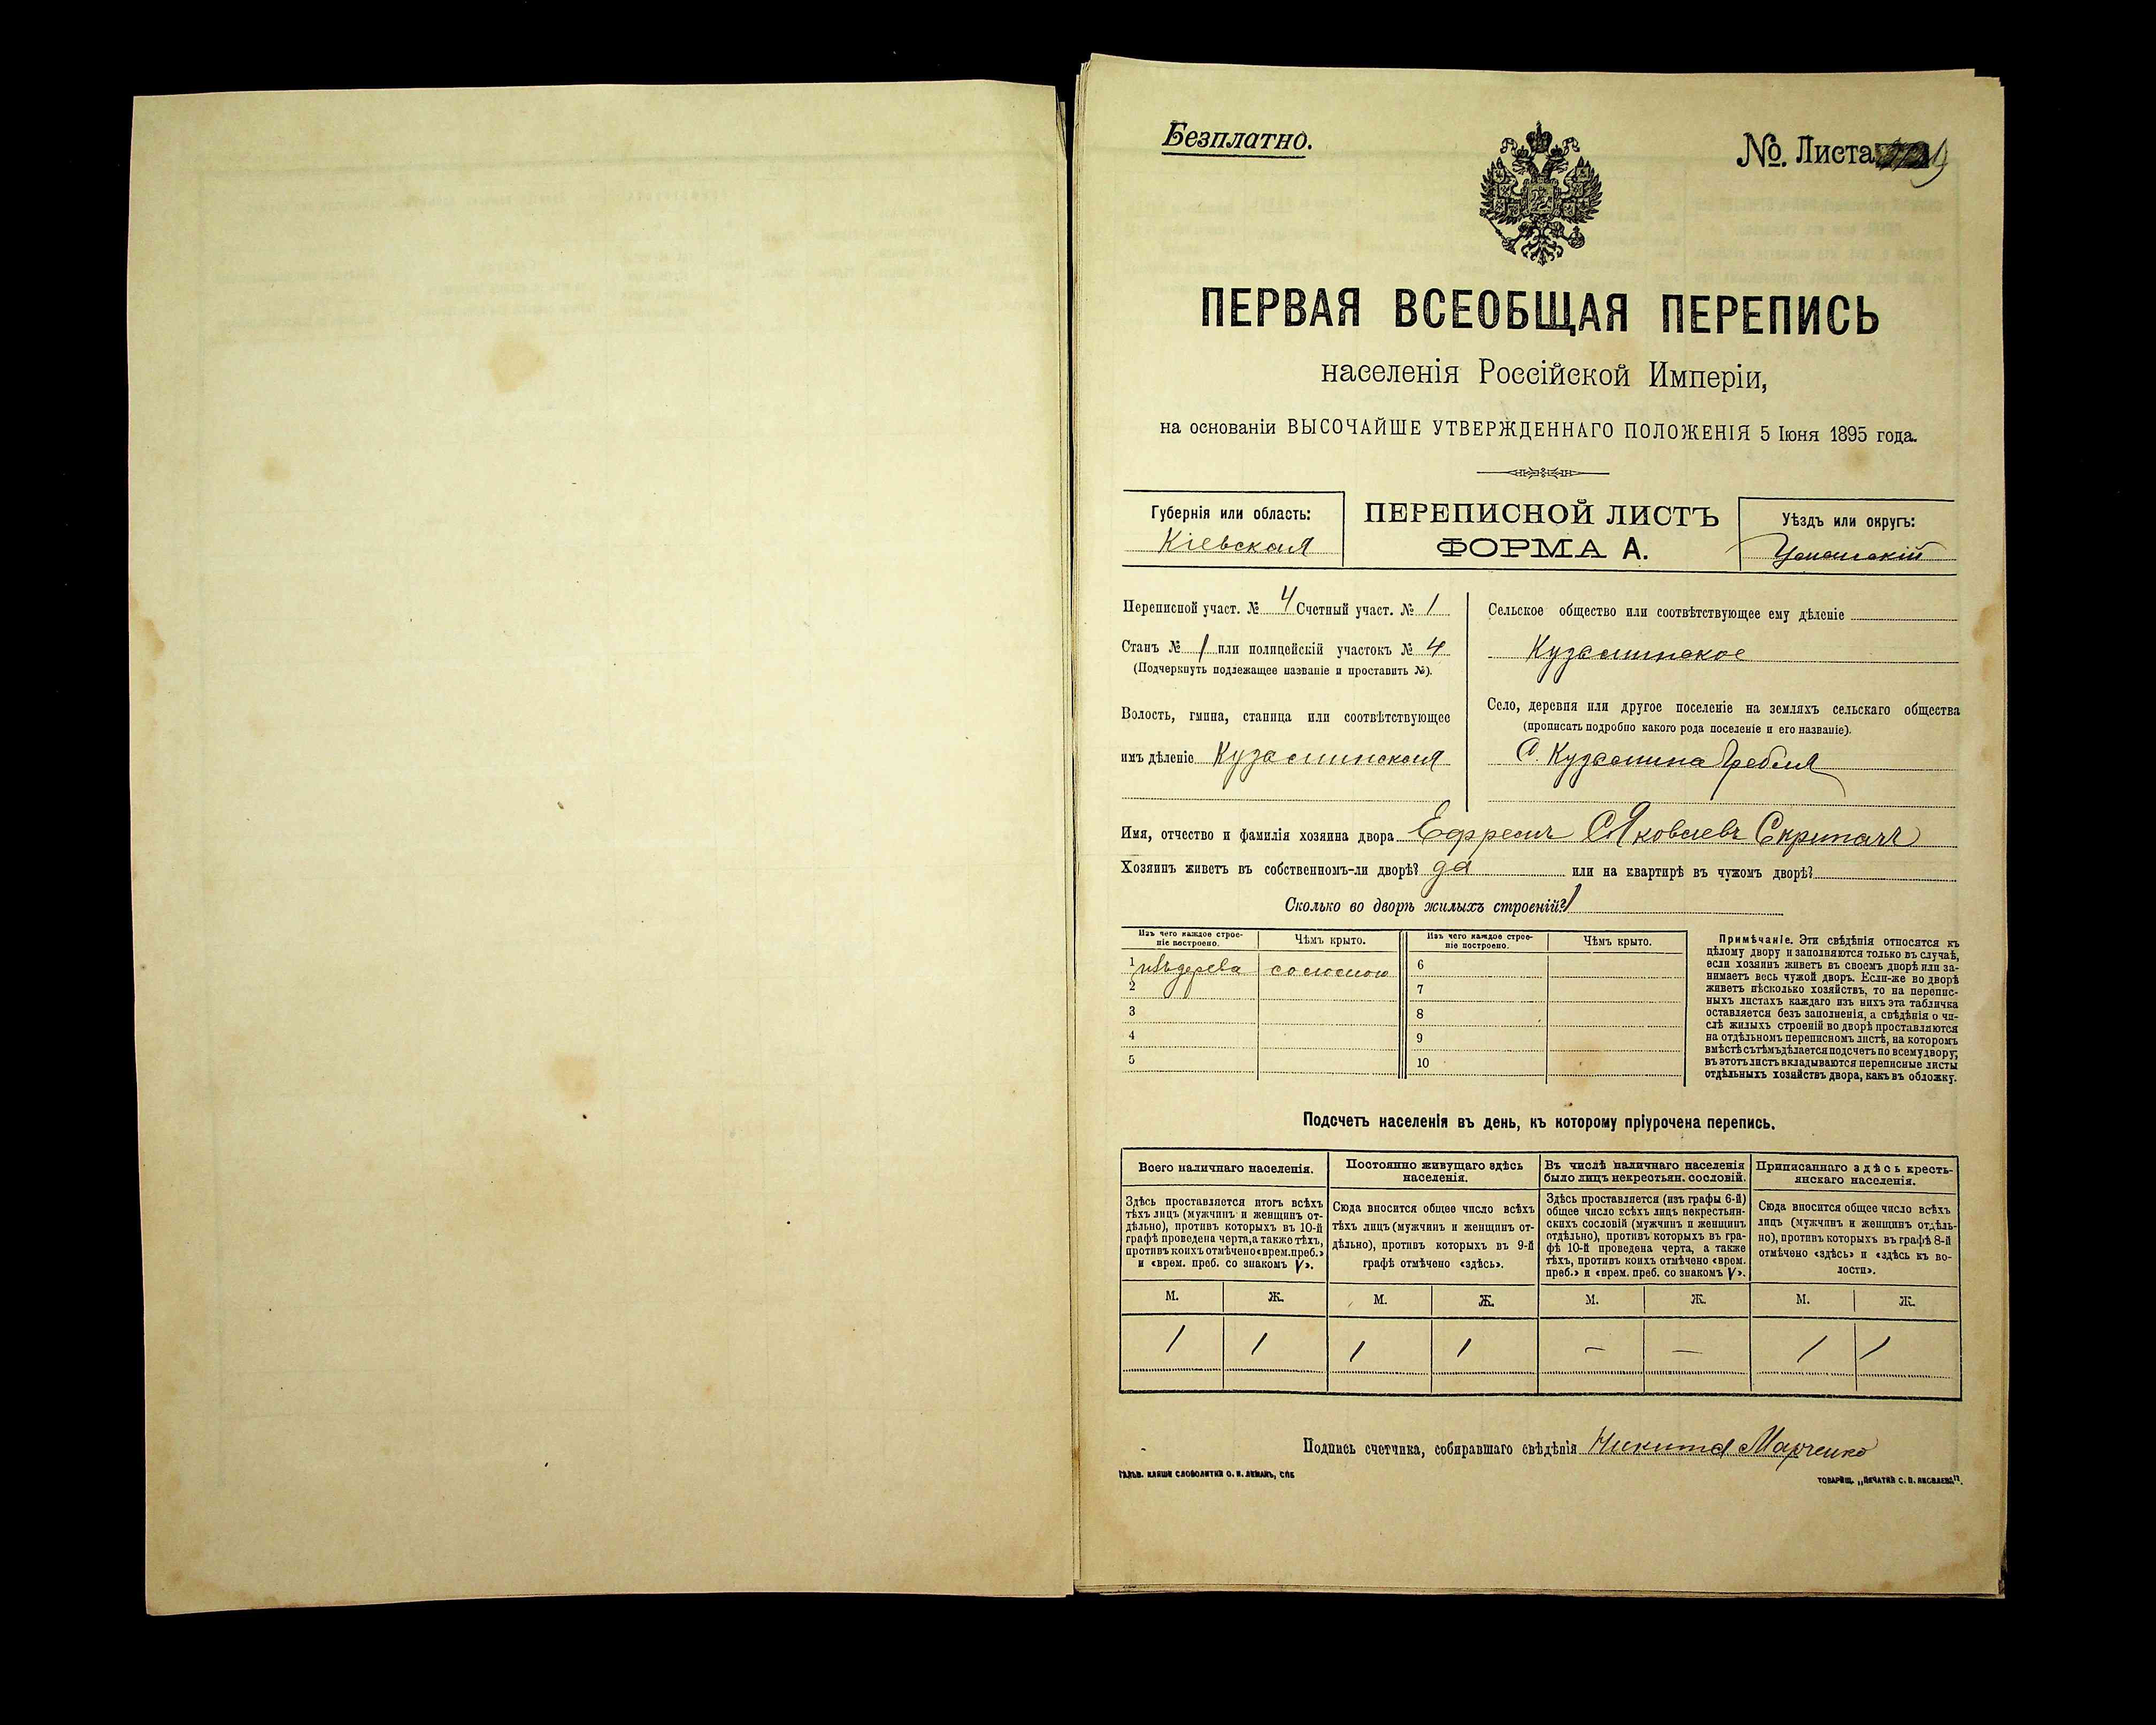 Безплатно.
№. Листа
ПЕРВАЯ ВСЕОБЩАЯ ПЕРЕПИСЬ
населенія Россійской Имперіи,
на основаніи ВЫСОЧАЙШЕ УТВЕРЖДЕННАГО ПОЛОЖЕНІЯ 5 Іюня 1895 года.
Губернія или область:
Кіевская
ПЕРЕПИСНОЙ ЛИСТЪ
ФОРМА А.
Уѣздъ или округъ:
Уманскій
Переписной участ. № 4 Счетный участ. № 1
Станъ № 1 или полицейскій участокъ № 4
(Подчеркнуть подлежащее названіе и проставить №).
Волость, гмина, станица или соотвѣтствующее
имъ дѣленіе Кузьминская
Сельское общество или соотвѣтствующее ему дѣленіе
Кузьминское
Село, деревня или другое поселеніе на земляхъ сельскаго общества
(прописать подробно какого рода поселеніе и его названіе).
С. Кузьмина Гребля
Имя, отчество и фамилія хозяина двора Ефремъ Яковлевъ Скрипачъ
Хозяинъ живетъ въ собственномъ-ли дворѣ? да или на квартирѣ въ чужомъ дворѣ?
Сколько во дворѣ жилыхъ строеній? 1
Изъ чего каждое строе-
ніе построено.
Чѣмъ крыто.
Изъ чего каждое строе-
ніе построено.
Чѣмъ крыто.
1 изъ дерева соломою 6
2 7
3 8
4 9
5 10
Примѣчаніе. Эти свѣдѣнія относятся къ
цѣлому двору и заполняются только въ случаѣ,
если хозяинъ живетъ въ своемъ дворѣ или за-
нимаетъ весь чужой дворъ. Если-же во дворѣ
живетъ нѣсколько хозяйствъ, то на перепис-
ныхъ листахъ каждаго изъ нихъ эта табличка
оставляется безъ заполненія, а свѣдѣнія о чи-
слѣ жилыхъ строеній во дворѣ проставляются
на отдѣльномъ переписномъ листѣ, на которомъ
вмѣстѣ съ тѣмъ дѣлается подсчетъ по всему двору;
въ этотъ листъ вкладываются переписные листы
отдѣльныхъ хозяйствъ двора, какъ въ обложку.
Подсчетъ населенія въ день, къ которому пріурочена перепись.
Всего наличнаго населенія.
Здѣсь проставляется итогъ всѣхъ
тѣхъ лицъ (мужчинъ и женщинъ от-
дѣльно), противъ которыхъ въ 10-й
графѣ проведена черта, а также тѣхъ,
противъ коихъ отмѣчено «врем. преб.»
и «врем. преб. со знакомъ V».
Постоянно живущаго здѣсь
населенія.
Сюда вносится общее число всѣхъ
тѣхъ лицъ (мужчинъ и женщинъ от-
дѣльно), противъ которыхъ въ 9-й
графѣ отмѣчено «здѣсь».
Въ числѣ наличнаго населенія
было лицъ некрестьян. сословій.
Здѣсь проставляется (изъ графы 6-й)
общее число всѣхъ лицъ некрестьян-
скихъ сословій (мужчинъ и женщинъ
отдѣльно), противъ которыхъ въ гра-
фѣ 10-й проведена черта, а также
тѣхъ, противъ коихъ отмѣчено «врем.
преб.» и «врем. преб. со знакомъ V».
Приписаннаго здѣсь кресть-
янскаго населенія.
Сюда вносится общее число всѣхъ
лицъ (мужчинъ и женщинъ отдѣль-
но), противъ которыхъ въ графѣ 8-й
отмѣчено «здѣсь» и «здѣсь къ во-
лости».
М. Ж. М. Ж. М. Ж. М. Ж.
1 1 1 1 — — 1 1
Подпись счетчика, собиравшаго свѣдѣнія Никита Марченко
ГАЛЬВ. КЛИШЕ СЛОВОЛИТНИ О. И. ЛЕМАНЪ, СПБ
ТОВАРИЩ. „ПЕЧАТНЯ С. П. ЯКОВЛЕВА".